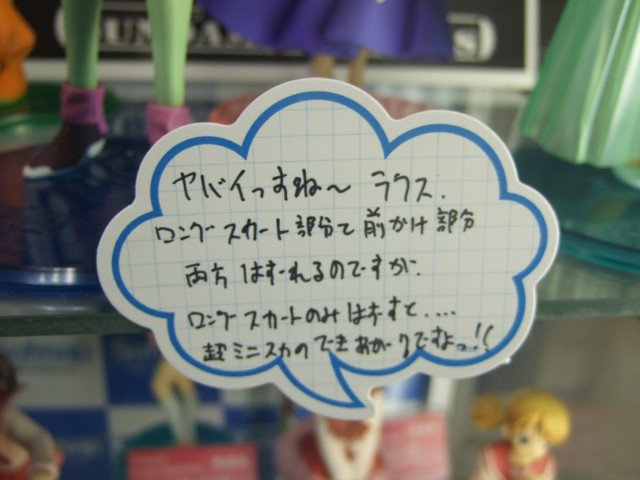 GUNDA
S
ヤバイっすね〜 ラクス.
ロングスカート部分て前かけ部分
両方はずれるのですが.
ロングスカートのみはずすと....
超ミニスカのできあがりですよっ!!